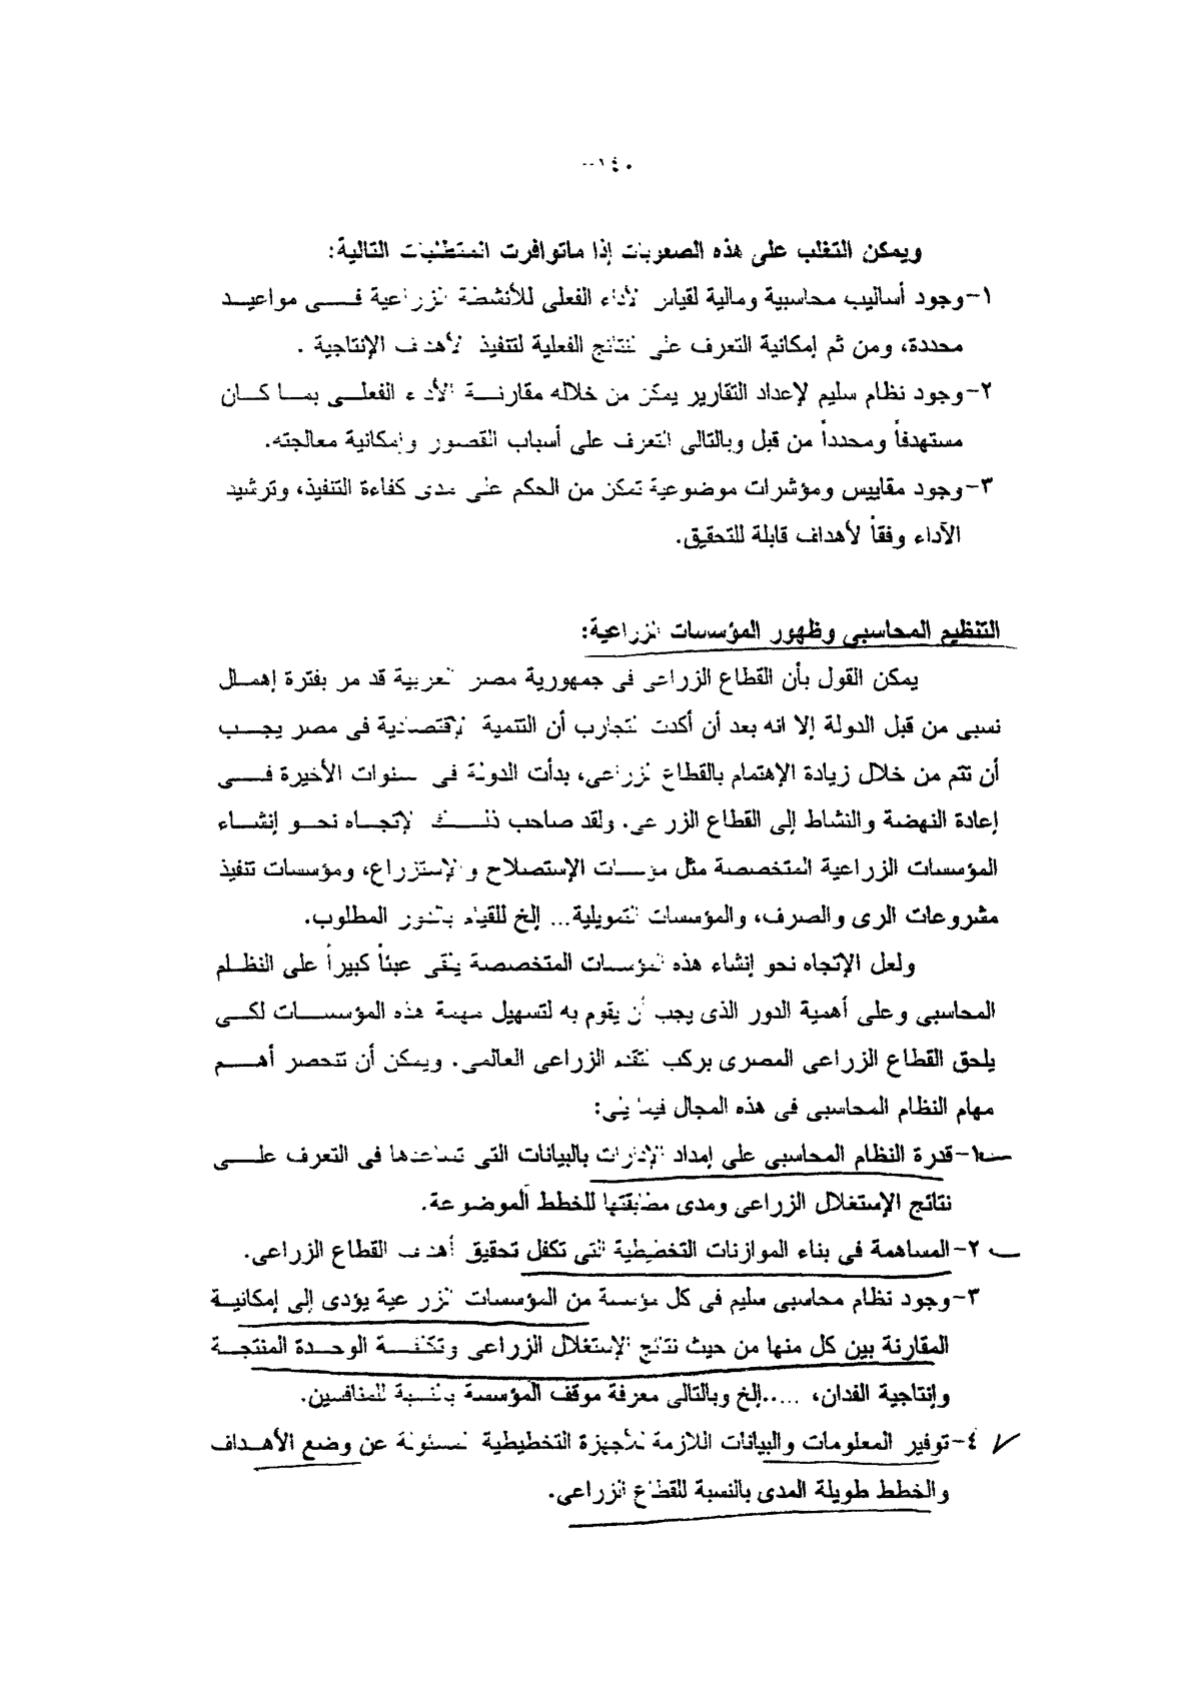 -١٤٠-
ويمكن التغلب على هذه الصعوبات إذا ماتوافرت المتطلبات التالية:
١-وجود أساليب محاسبية ومالية لقياس الأداء الفعلى للأنشطة الزراعية فــى مواعيــد
محددة، ومن ثم إمكانية التعرف على النتائج الفعلية لتنفيذ الأهداف الإنتاجية .
٢-وجود نظام سليم لإعداد التقارير يمكن من خلاله مقارنــة الأداء الفعلــى بمــا كــان
مستهدفاً ومحدداً من قبل وبالتالى التعرف على أسباب القصور وإمكانية معالجته.
٣-وجود مقاييس ومؤشرات موضوعية تمكن من الحكم على مدى كفاءة التنفيذ، وترشيد
الآداء وفقاً لأهداف قابلة للتحقيق.
التنظيم المحاسبى وظهور المؤسسات الزراعية:
يمكن القول بأن القطاع الزراعى فى جمهورية مصر العربية قد مر بفترة إهمــال
نسبى من قبل الدولة إلا انه بعد أن أكدت التجارب أن التنمية الإقتصادية فى مصر يجــب
أن تتم من خلال زيادة الإهتمام بالقطاع الزراعى، بدأت الدولة فى السنوات الأخيرة فــى
إعادة النهضة والنشاط إلى القطاع الزراعى. ولقد صاحب ذلــك الإتجــاه نحــو إنشــاء
المؤسسات الزراعية المتخصصة مثل مؤسسات الإستصلاح والإستزراع، ومؤسسات تنفيذ
مشروعات الرى والصرف، والمؤسسات التمويلية... إلخ للقيام بالدور المطلوب.
ولعل الإتجاه نحو إنشاء هذه المؤسسات المتخصصة يلقى عبئاً كبيراً على النظــام
المحاسبى وعلى أهمية الدور الذى يجب أن يقوم به لتسهيل مهمة هذه المؤسســات لكــى
يلحق القطاع الزراعى المصرى بركب التقدم الزراعى العالمى. ويمكن أن تنحصر أهــم
مهام النظام المحاسبى فى هذه المجال فيما يلى:
١-قدرة النظام المحاسبى على إمداد الإدارات بالبيانات التى تساعدها فى التعرف علــى
نتائج الإستغلال الزراعى ومدى مطابقتها للخطط الموضوعة.
٢-المساهمة فى بناء الموازنات التخطيطية التى تكفل تحقيق أهداف القطاع الزراعى.
٣-وجود نظام محاسبى سليم فى كل مؤسسة من المؤسسات الزراعية يؤدى إلى إمكانيــة
المقارنة بين كل منها من حيث نتائج الإستغلال الزراعى وتكلفــة الوحــدة المنتجــة
وإنتاجية الفدان، .....إلخ وبالتالى معرفة موقف المؤسسة بالنسبة للمنافسين.
٤-توفير المعلومات والبيانات اللازمة للأجهزة التخطيطية المسئولة عن وضع الأهــداف
والخطط طويلة المدى بالنسبة للقطاع الزراعى.